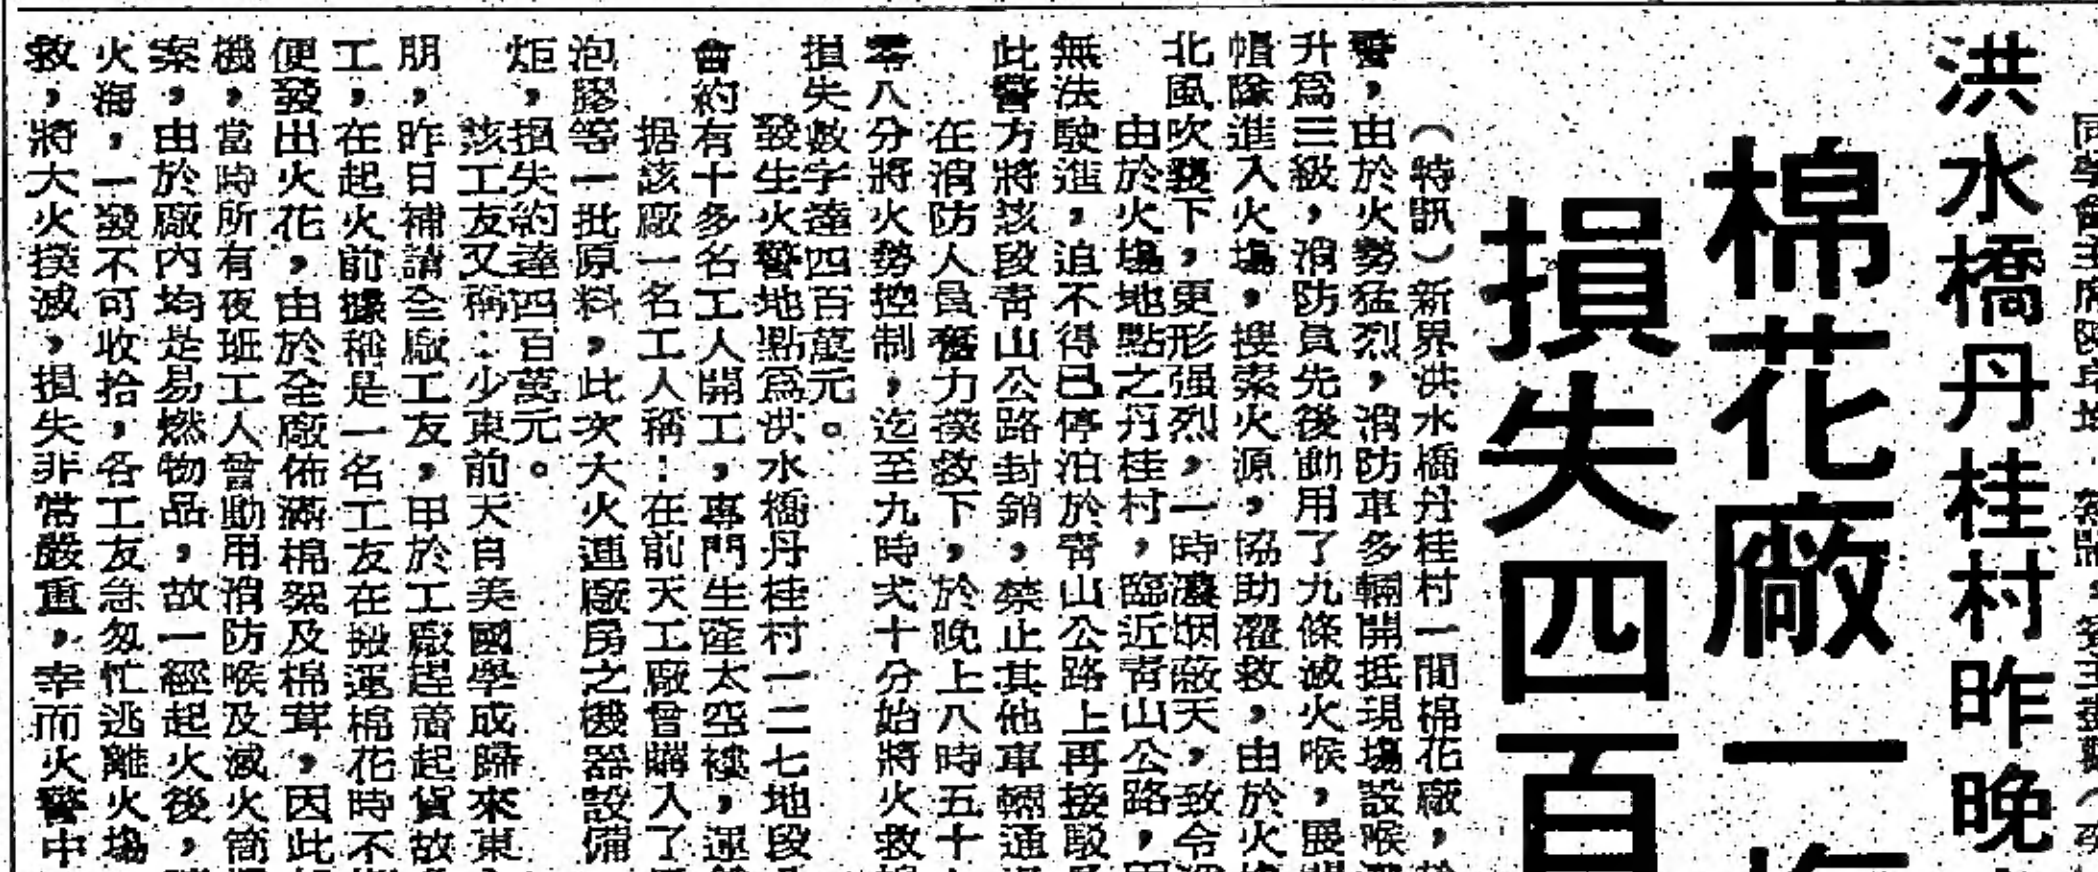 洪水橋丹桂村昨晚
棉花廠一
損失四百
（特訊）新界洪水橋丹桂村一間棉花廠，
警，由於火勢猛烈，消防車多輛開抵現場設喉
升為三級，消防員先後動用了九條滅火喉，
帽隊進入火場，搜索火源，協助灌救，由於火
北風吹襲下，更形强烈，一時濃烟蔽天，致令
由於火場地點之丹桂村，臨近青山公路，
無法駛進，迫不得已停泊於青山公路上再接駁
此警方將該段青山公路封銷，禁止其他車輛通
在消防人員奮力撲救下，於晚上八時五十
零八分將火勢控制，迄至九時弍十分始將火救
損失數字達四百萬元。
發生火警地點為洪水橋丹桂村一二七地段
會約有十多名工人開工，專門生產太空褸，運
据該廠一名工人稱：在前天工廠曾購入了
泡膠等一批原料，此次大火連廠房之機器設備
炬，損失約達四百萬元。
該工友又稱：少東前天自美國學成歸來東
朋，昨日補請全廠工友，甲於工廠趕着起貨故
工，在起火前據稱是一名工友在搬運棉花時不
便發出火花，由於全廠佈滿棉絮及棉茸，因此
機，當時所有夜班工人曾動用消防喉及滅火筒
案，由於廠內均是易燃物品，故一經起火後，
火海，一發不可收拾，各工友急忽忙逃離火場
救，將大火撲滅，損失非常嚴重，幸而火警中